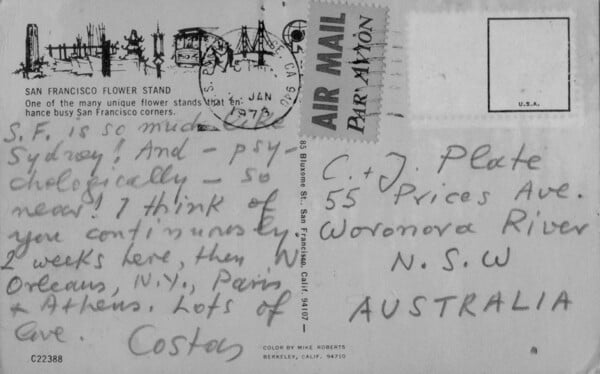 SAN FRANCISCO FLOWER STAND
One of the many unique flower stands that en-
hance busy San Francisco corners.
S.F. is so much like
Sydney! And - psy-
chologically - so
near! I think of
you continuously.
2 weeks here, then N
Orleans, N.Y., Paris
& Athens. Lots of
love. Costas
C22388
CA 940
JAN
AIR MAIL
PAR AVION
U.S.A.
85 Bluxome St., San Francisco, Calif. 94107
C. + J. Plate
55 Prices Ave.
Woronora River
N.S.W
AUSTRALIA
COLOR BY MIKE ROBERTS
BERKELEY, CALIF. 94710